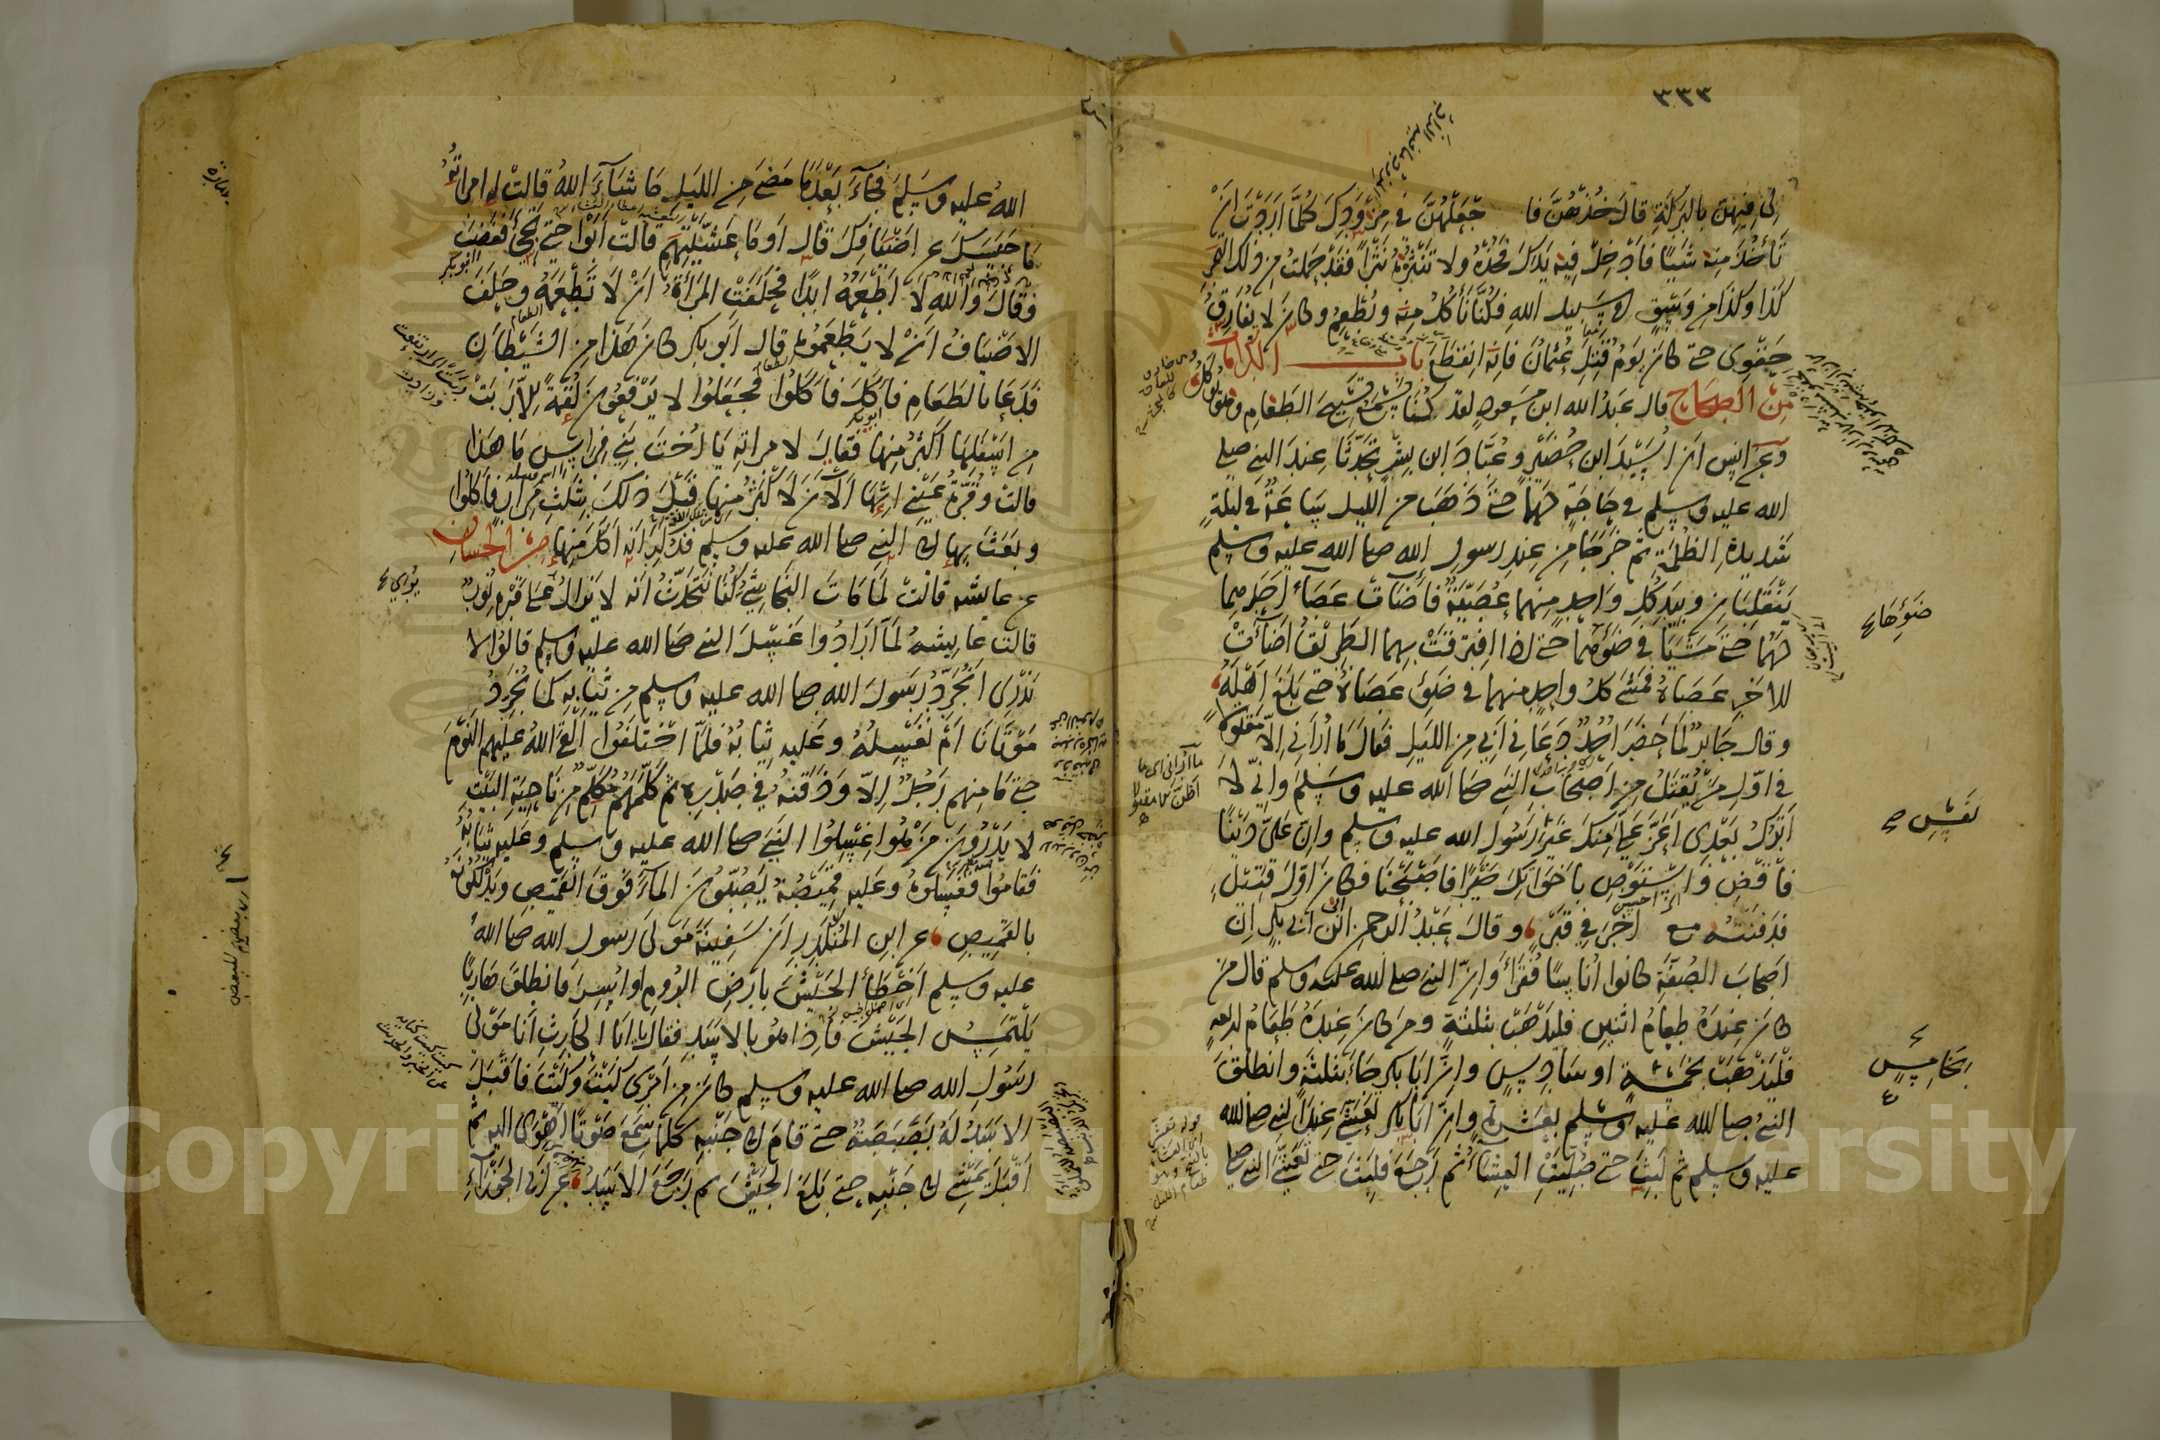 ٣٣٣
لي فيهن بالبركة قال خذهن فا جعلهن في مزودك كلما اردت ان
تأخذ منه شيئا فادخل فيه يدك فخذه ولا تنثره نثرا فقد حملت من ذلك التمر
كذا وكذا من وسق في سبيل الله فكنا نأكل منه ونطعم وكان لا يفارق
حقوي حتى كان يوم قتل عثمان فانه انقطع باب الكرامات
من الصحاح قال عبد الله ابن مسعود لقد كنا نسمع تسبيح الطعام وهو يؤكل
وعن انس ان اسيد ابن حضير وعباد ابن بشر تحدثا عند النبي صلى
الله عليه وسلم في حاجة لهما حتى ذهب من الليل ساعة في ليلة
شديدة الظلمة ثم خرجا من عند رسول الله صلى الله عليه وسلم
ينقلبان وبيد كل واحد منهما عصية فاضات عصا احدهما
لهما حتى مشيا في ضوئهما حتى اذا افترقت بهما الطريق اضاءت
للاخر عصاه فمشى كل واحد منهما في ضوء عصاه حتى بلغ اهله
وقال جابر لما حضر احد دعاني ابي من الليل فقال ما اراني الا مقتولا
في اول من يقتل من اصحاب النبي صلى الله عليه وسلم واني لا
اترك بعدي اعز علي منك غير رسول الله عليه وسلم وان علي دينا
فاقض واستوص باخواتك خيرا فاصبحنا فكان اول قتيل
فدفنته مع اخر في قبر وقال عبد الرحمن ابن ابي بكر ان
اصحاب الصفة كانوا اناسا فقراء وان النبي صلى الله عليه وسلم قال من
كان عنده طعام اثنين فليذهب بثلثة ومن كان عنده طعام اربعة
فليذهب بخمسة او سادس وان ابا بكر جاء بثلثة وانطلق
النبي صلى الله عليه وسلم بعشرة وان ابا بكر تعشى عند النبي صلى الله
عليه وسلم ثم لبث حتى صليت العشاء ثم رجع فلبث حتى تعشى النبي صلى
ضوءها
نفس
بخامس
الله عليه وسلم فجاء بعدما مضى من الليل ما شاء الله قالت له امراته
ما حبسك عن اضيافك قال او ما عشيتهم قالت ابوا حتى تجي فغضب
وقال والله لا اطعمه ابدا فحلفت المرأة ان لا تطعمه وحلف
الاضياف ان لا يطعموه قال ابو بكر كان هذا من الشيطان
فدعا بالطعام فاكل فاكلوا فجعلوا لا يرفعون لقمة الا ربت
من اسفلها اكثر منها فقال لامراته يا اخت بني فراس ما هذا
قالت وقرة عيني انها الآن لاكثر منها قبل ذلك بثلث مرار فاكلوا
وبعث بها الى النبي صلى الله عليه وسلم فذكر انه اكل منها من الحسان
عن عايشه قالت لما مات النجاشي كنا نتحدث انه لا يزال على قبره نور
قالت عايشه لما ارادوا غسل النبي صلى الله عليه وسلم قالوا لا
ندري انجرد رسول الله صلى الله عليه وسلم من ثيابه كما نجرد
موتانا ام نغسله وعليه ثيابه فلما اختلفوا القى الله عليهم النوم
حتى ما منهم رجل الا وذقنه في صدره ثم كلمهم مكلم من ناحية البيت
لا يدرون من هو اغسلوا النبي صلى الله عليه وسلم وعليه ثيابه
فقاموا فغسلوه وعليه قميصه يصبون الماء فوق القميص ويدلكونه
بالقميص عن ابن المنكدر ان سفينة مولى رسول الله صلى الله
عليه وسلم اخطأ الجيش بارض الروم او اسر فانطلق هاربا
يلتمس الجيش فاذا هو بالاسد فقال يا ابا الحارث انا مولى
رسول الله صلى الله عليه وسلم كان من امري كيت وكيت فاقبل
الاسد له بصبصة حتى قام الى جنبه كلما سمع صوتا اهوى اليه ثم
اقبل يمشي الى جنبه حتى بلغ الجيش ثم رجع الاسد عن ابي الجوزاء
Copyright © King Saud University